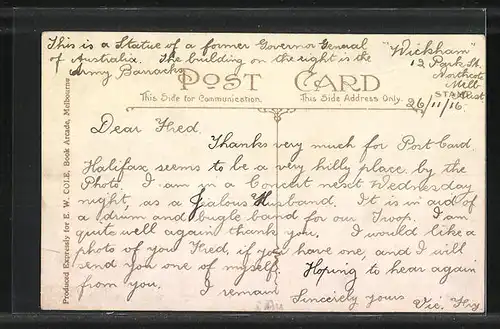 This is a Statue of a former Governor General
of Australia. The building on the right is the
Army Barracks
"Wickham"
12 Park St.
Northcote
Melb
Aust
26/11/16.
POST CARD
This Side for Communication.
This Side Address Only.
STAMP
Produced Expressly for E. W. COLE, Book Arcade, Melbourne
Dear Fred.
Thanks very much for Post Card.
Halifax seems to be a very hilly place by the
Photo. I am in a Concert next Wednesday
night, as a Jealous Husband. It is in aid of
a drum and bugle band for our Troop. I am
quite well again thank you. I would like a
photo of you Fred, if you have one, and I will
send you one of myself. Hoping to hear again
from you. I remain
Sincerely yours
Vic.